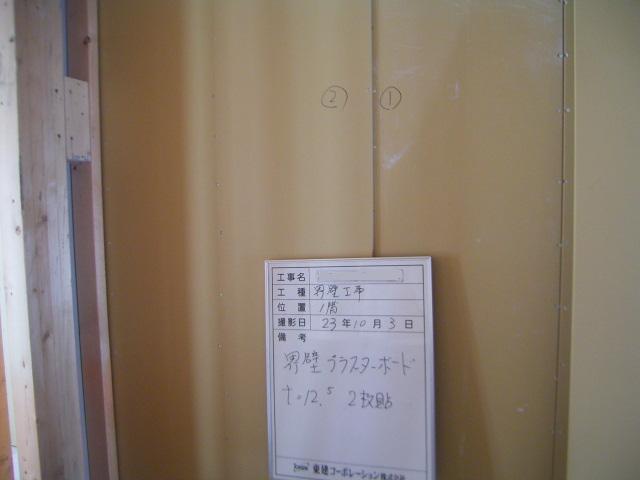 ② ①
工事名
工種 界壁工事
位置 1階
撮影日 23年10月3日
備考
界壁プラスターボード
t=12.5 2枚貼
東建コーポレーション株式会社